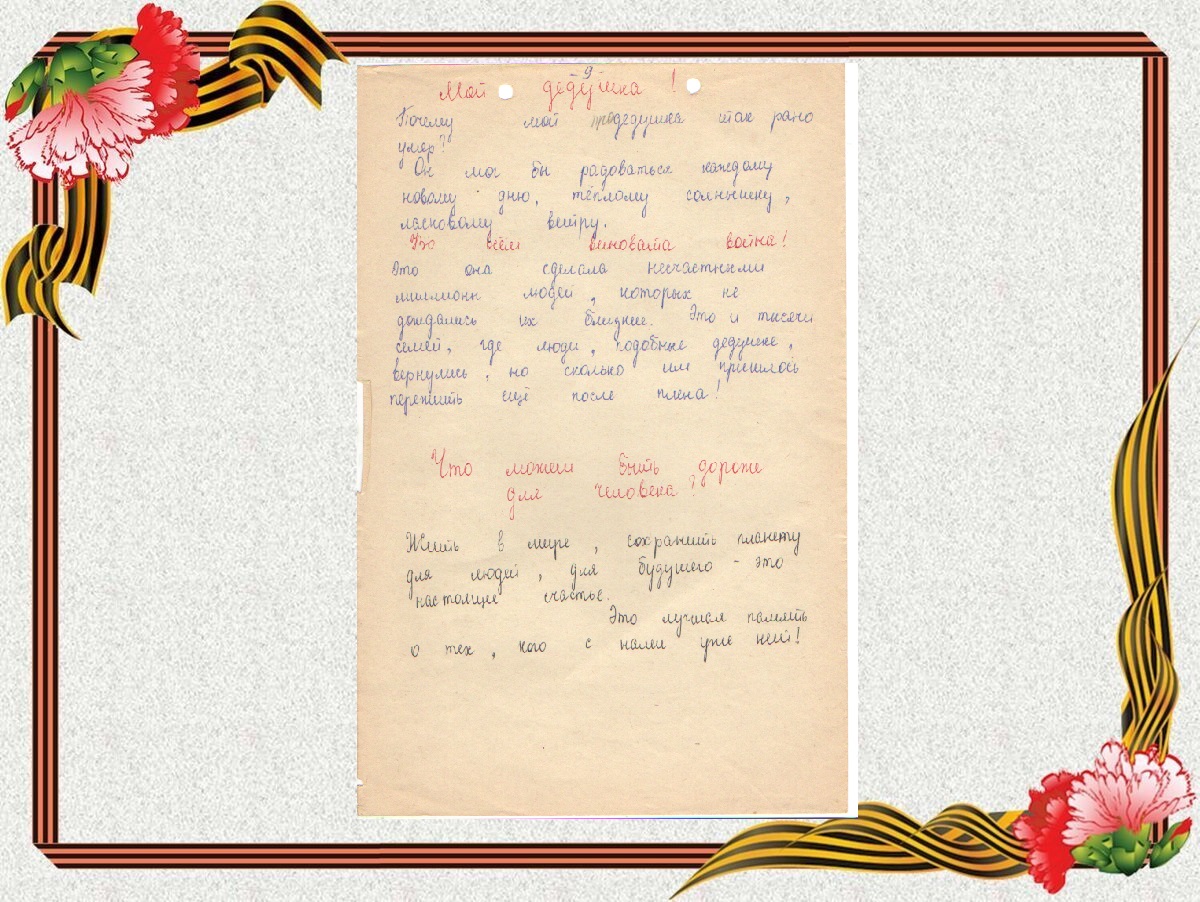 - 9
Мой дедушка !
Почему мой прадедушка так рано
умер?
Он мог бы радоваться каждому
новому дню, тёплому солнышку,
ласковому ветру.
Во всём виновата война!
Это она сделала несчастными
миллионы людей, которых не
дождались их близкие. Это и тысячи
семей, где люди, подобные дедушке,
вернулись, но сколько им пришлось
пережить ещё после плена!
Что может быть дороже
для человека?
Жить в мире, сохранить планету
для людей, для будущего - это
настоящее счастье.
Это лучшая память
о тех, кого с нами уже нет!